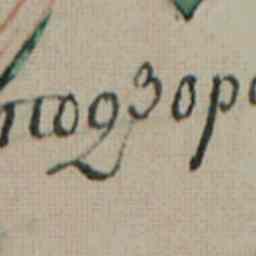 подзоро